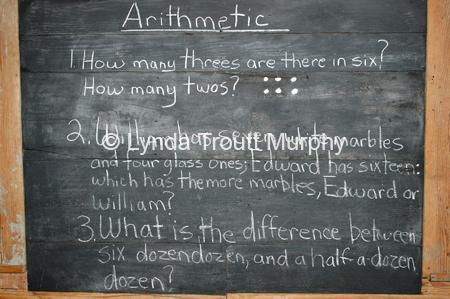 Arithmetic
1 How many threes are there in six?
How many twos?
2. William has seven white marbles
© Lynda Troutt Murphy
and four glass ones; Edward has sixteen:
which has the more marbles, Edward or
William?
3. What is the difference between
six dozen dozen, and a half a dozen
dozen?